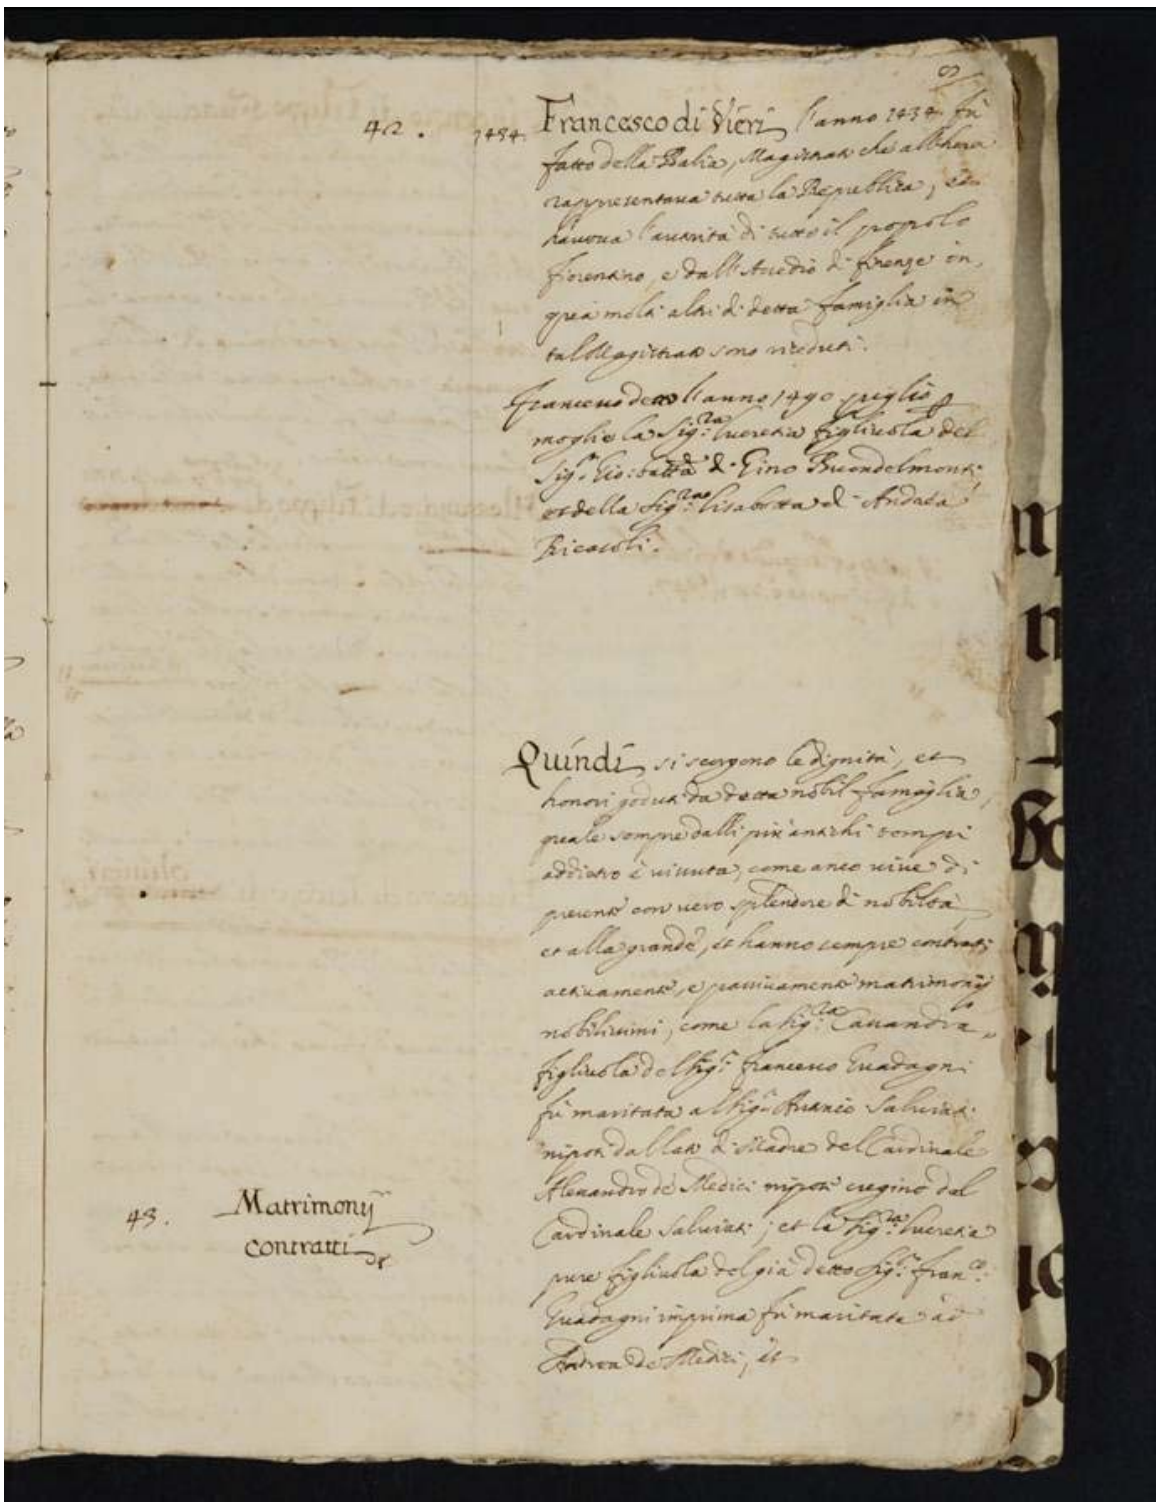 42. 1434. Francesco di Vieri l'anno 1434 fù
fatto della Balia, Magistrato che all'hora
rappresentaua tutta la Republica, et
haueua l'autorità di tutto il popolo
fiorentino, e dall'Assedio di firenze in
quà molti altri di detta famiglia in
tal Magistrato sono riseduti.
Francesco detto l'anno 1490 pigliò p
moglie la Sig.ra lucretia figliuola del
Sig.r Gio: batta di Gino Buondelmonti,
et della Sig.ra lisabetta di Andrea
Ricasoli.
Quindi si scorgono le dignità, et
honori goduti da detta nobil famiglia,
quale sempre dalli più antichi tempi
addietro è uiuuta, come anco uiue di
presente con uero splendore di nobiltà,
et alla grande, et hanno sempre contratti
attiuamente, e passiuamente matrimonij
nobilissimi, come la Sig.ra Cassandra
figliuola del Sig.r francesco Guadagni
fù maritata al Sig.r Auerardo Saluiati
nipote dal lato di Madre del Cardinale
43. Matrimonij Alessandro de Medici nipote cugino del
contratti Cardinale Saluiati; et la Sig.ra lucretia
pure figliuola del già detto Sig.r fran.co
Guadagni in prima fù maritata ad
Andrea de Medici, et